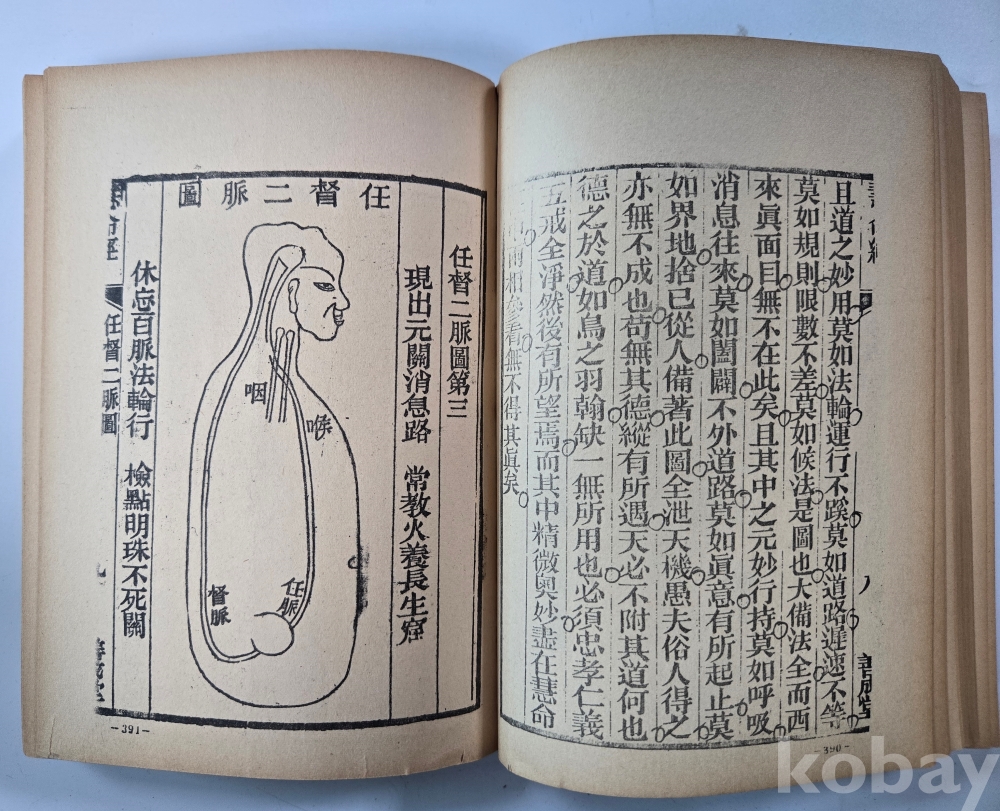 且道之妙用莫如法輪運行不蹊莫如道路遲速不等
莫如規則限數不差莫如候法是圖也大備法全而西
來眞面目無不在此矣且其中之元妙行持莫如呼吸
消息往來莫如闔闢不外道路莫如眞意有所起止莫
如界地捨已從人備著此圖全泄天機愚夫俗人得之
亦無不成也苟無其德縱有所遇天必不附其道何也
德之於道如鳥之羽翰缺一無所用也必須忠孝仁義
五戒全淨然後有所望焉而其中精微奧妙盡在慧命
兩相參看無不得其眞矣
八
善成堂
-390-
任督二脈圖第三
現出元關消息路 常教火養長生窟
任督二脈圖
咽
喉
督脈
任脈
休忘百脈法輪行 檢點明珠不死關
命經
任督二脈圖
九
-391-
kobay